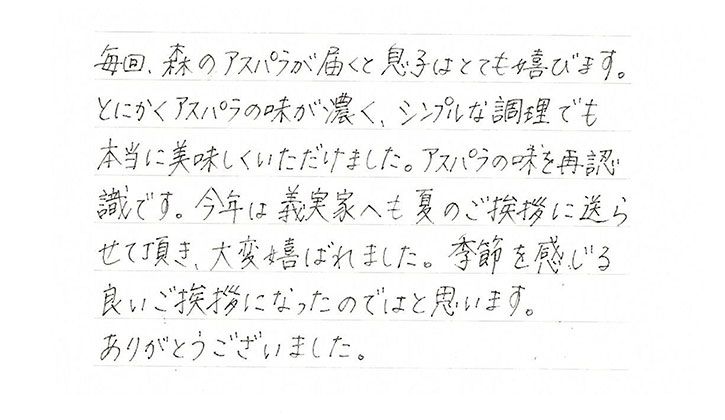 毎回、森のアスパラが届くと息子はとても嬉びます。
とにかくアスパラの味が濃く、シンプルな調理でも
本当に美味しくいただけました。アスパラの味を再認
識です。今年は義実家へも夏のご挨拶に送ら
せて頂き、大変嬉ばれました。季節を感じる
良いご挨拶になったのではと思います。
ありがとうございました。